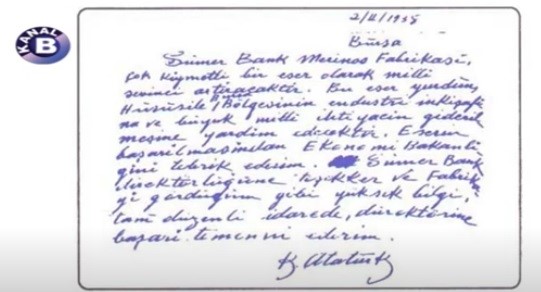 KANAL
B
2/II/1938
Bursa
Sümer Bank Merinos Fabrikası,
çok kıymetli bir eser olarak milli
sevinci artıracaktır. Bu eser yurdun,
Hususile Bursa Bölgesinin endüstri inkişafı
na ve büyük milli ihtiyacın gideril
mesine yardım edecektir. Eserin
başarılmasından Ekonomi Bakanlı
ğını tebrik ederim. Sümer Bank
direktörlüğüne teşekkür ve Fabrika
yı gördüğüm gibi yüksek bilgi,
tam düzenli idarede, direktörüne
başarı temenni ederim.
K. Atatürk